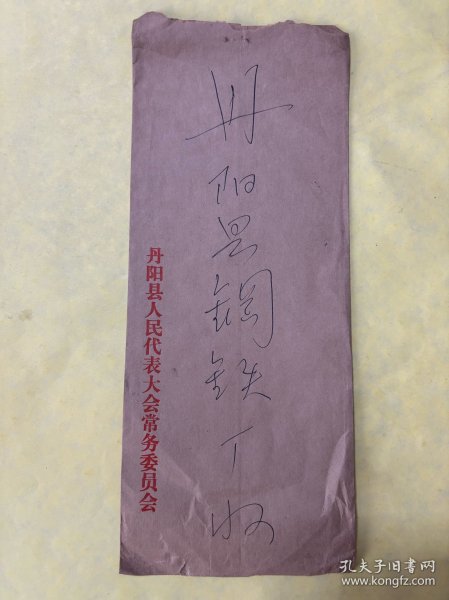 丹阳县鋼鉄厂收
丹阳县人民代表大会常务委员会
孔夫子旧书网
www.kongfz.com